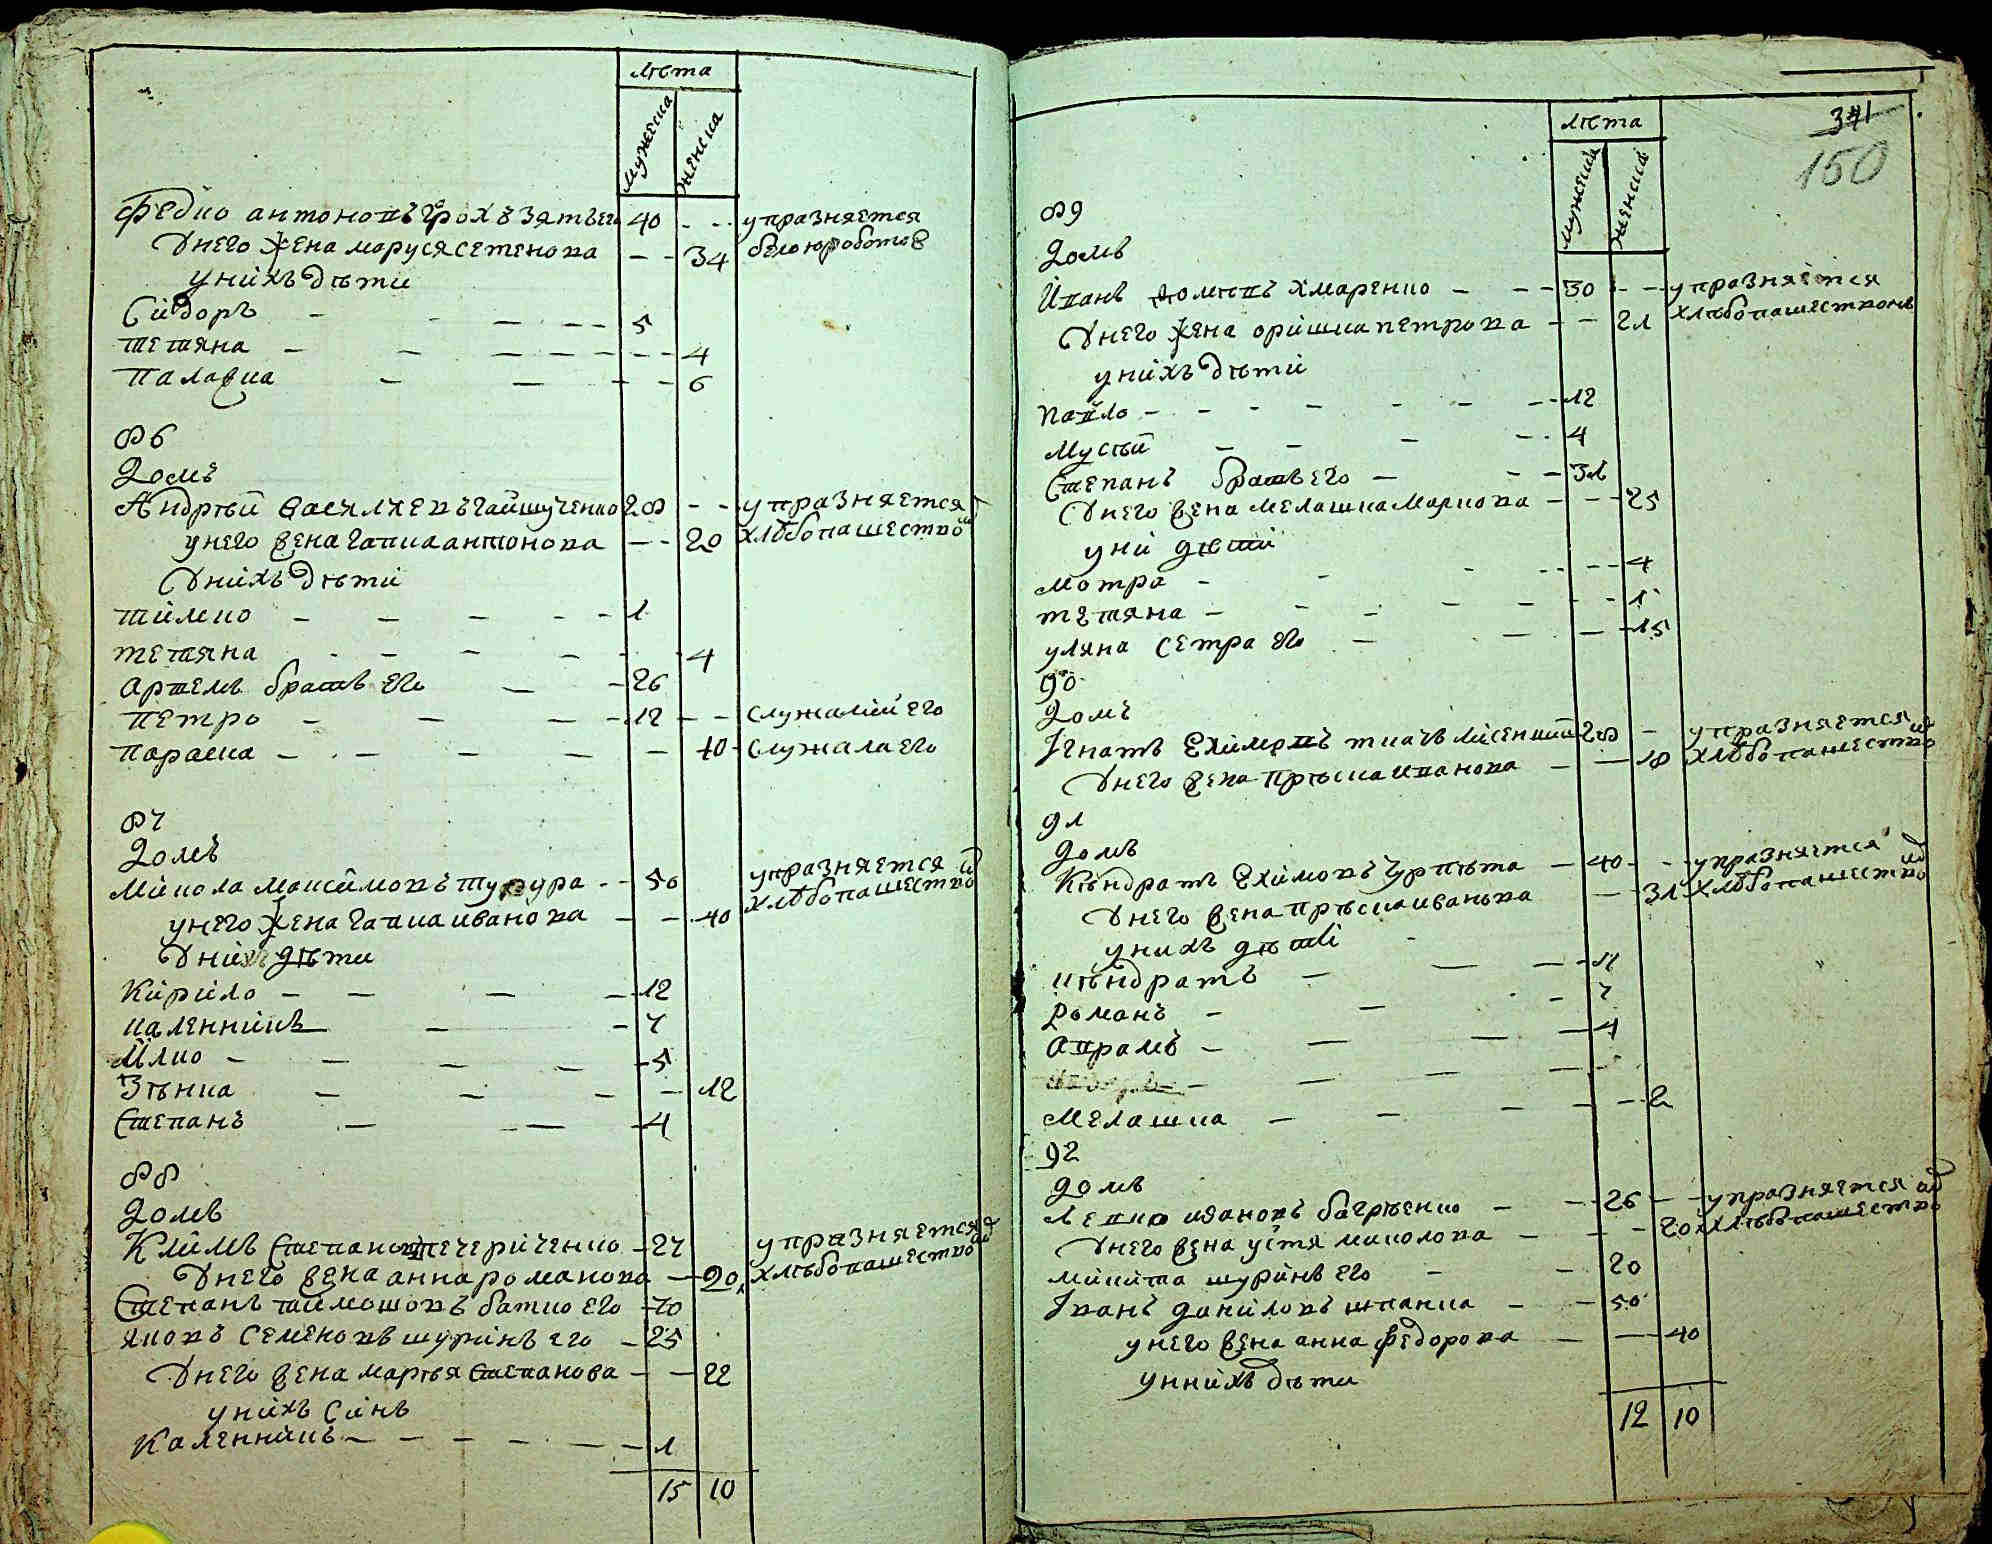 лѣта
мужеска женска
Федко антоновъ Грохъ зять его 40 - - упразняется
Унего жена маруся семенова - - 34 белою роботою
унихъ дѣти
Сидоръ - - - - 5
тетяна - - - - - - 4
палажка - - - - 6
86
Домъ
Андрѣй василиевъ 28 - - упразняется
унего жена гапка антонова - - 20 хлѣбопашеством
Унихъ дѣти
тимко - - - - - 1
тетяна - - - - - 4
артемъ братъ его - - 26
петро - - - - 12 - - служалий его
параска - - - - - 10 служала его
87
Домъ
Микола максимовъ - - 50 упразняется
унего жена гапка иванова - - 40 хлѣбопашеством
Унихъ дѣти
Кирило - - - - 12
каленникъ - - 7
Илко - - - - 5
Зѣнка - - - - - 12
Степанъ - - - 4
88
Домъ
Климъ Степановъ печериченко - 27 упразняется
Унего жена анна романова - 20 хлѣбопашеством
Степанъ тимошовъ батко его 70
яковъ семеновъ шуринъ его - 25
Унего жена марья степанова - - 22
унихъ синъ
Каленникъ - - - - - - 1
15 10
лѣта
341
150
мужеска женска
89
Домъ
Иванъ хмаренко - - - 30 - - упразняется
Унего жена оришка петрова - - 21 хлѣбопашествомъ
унихъ дѣти
павло - - - - - - - - 12
мусѣй - - - - - 4
Степанъ братъ его - - - 31
Унего жена мелашка маркова - - - 25
уни дѣти
мотра - - - - - - - 4
тетяна - - - - - - - 1
уляна сетра его - - - - 15
90
Домъ
Игнатъ Ехимовъ ткачъ 28 - упразняется
Унего жена прѣска иванова - - 18 хлѣбопашеством
91
Домъ
Кѣндратъ Ехимовъ - 40 - - упразняется
Унего жена прѣска иванова - 31 хлѣбопашеством
унихъ дѣти
кѣндратъ - - - - 11
Романъ - - - 7
аврамъ - - - - 4
мелашка - - - - - 2
92
домъ
Левко ивановъ багрѣенко - - 26 - - упразняется
Унего жена устя миколова - - - 20 хлѣбопашеством
микита шуринъ его - - 20
Иванъ даниловъ - - 50
унего жена анна федорова - - 40
уннихъ дѣти
12 10